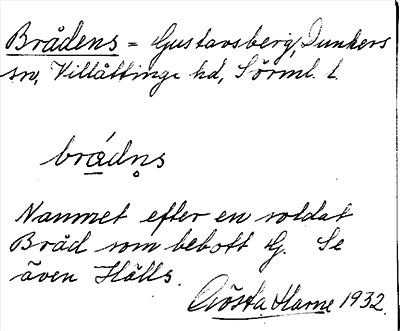 Brådens = Gustavsberg, Dunkers
sn, Villåttinge hd, Sörml. l
brådn̥s
Namnet efter en soldat
Bråd som bebott G. Se
även Hålls.
Gösta Harne 1932.